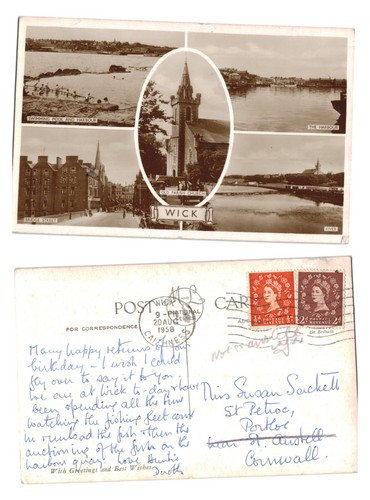 SWIMMING POOL AND HARBOUR
THE HARBOUR
OLD PARISH CHURCH
BRIDGE STREET
WICK
POST CARD
FOR CORRESPONDENCE
WICK
9-PM
20 AUG
1958
CAITHNESS
Many happy returns of your
birthday - I wish I could
fly over to say it to you.
We are at Wick to-day & have
been spending all the time
watching the fishing fleet come
in & unload the fish & then the
auctioning of the fish on the
harbour quay. Love Auntie
Dorothy
With Greetings and Best Wishes
Miss Susan Sackett
St Petroc,
Portloe
near St. Austell
Cornwall.